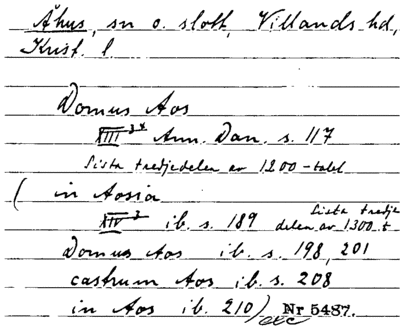 Åhus, sn o. slott, Villands hd,
Krist. l
Domus Aos
XIII 3-4 Ann. Dan. s. 117
Sista tredjedelen av 1200-talet
( in Aosia
XIV 3 ib. s. 189 Sista tredje
delen av 1300.t
Domus Aos ib. s. 198, 201
castrum Aos ib. s. 208
in Aos ib. 210) etc Nr 5487.